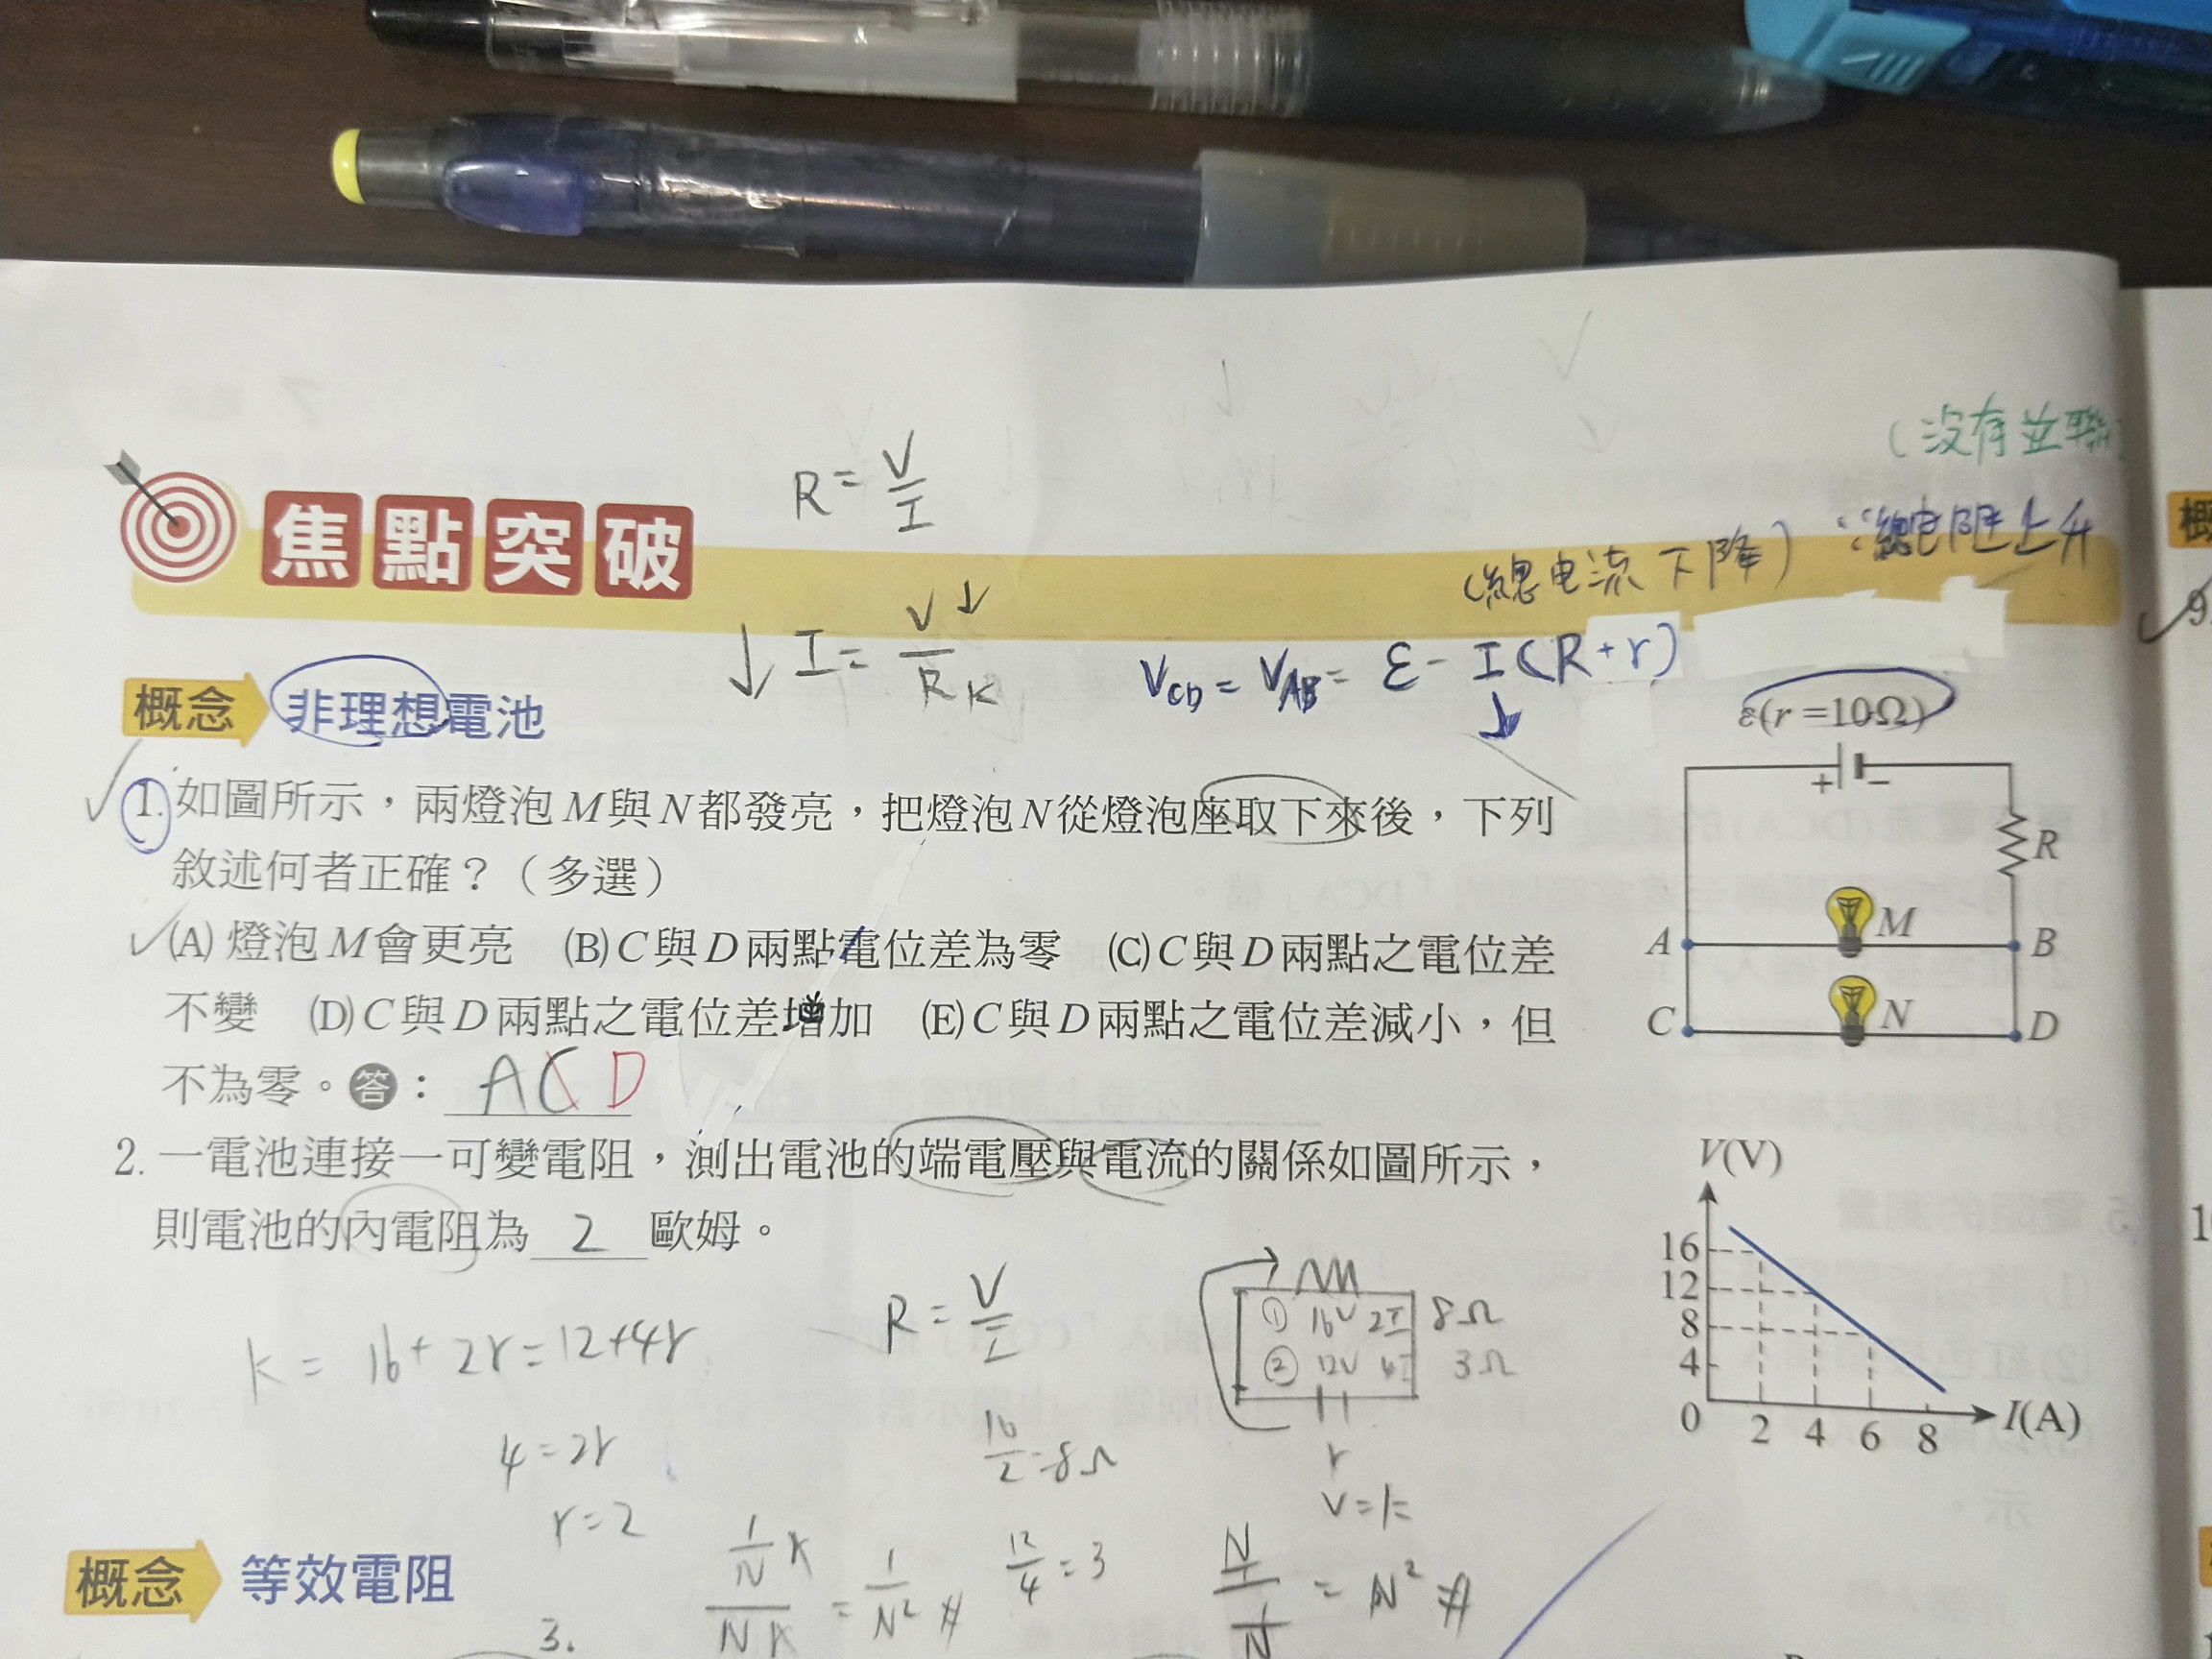 (沒有並聯)
R = V/I
焦點突破
(總电流下降) ∵總电阻上升
↓ I = V↓/R K
V_CD = V_AB = ε - I(R+r)
↓
概念 非理想電池
ε(r=10Ω)
+ −
R
M
A B
N
C D
1. 如圖所示，兩燈泡M與N都發亮，把燈泡N從燈泡座取下來後，下列
敘述何者正確？（多選）
(A) 燈泡M會更亮 (B)C與D兩點電位差為零 (C)C與D兩點之電位差
不變 (D)C與D兩點之電位差增加 (E)C與D兩點之電位差減小，但
不為零。答：ACD
2. 一電池連接一可變電阻，測出電池的端電壓與電流的關係如圖所示，
則電池的內電阻為 2 歐姆。
V(V)
16
12
8
4
0 2 4 6 8 I(A)
k = 16+2r=12+4r
4=2r
r=2
R = V/I
① 16V 2I 8Ω
② 12V 4I 3Ω
r
16/2=8Ω
12/4=3
概念 等效電阻
3.
= 1/N² #
= N² #
概
9.
1